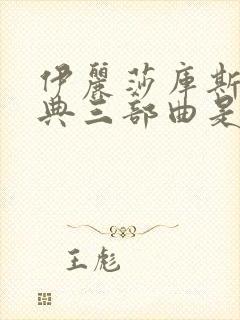 伊麗莎庫斯
典三部曲是
王彪